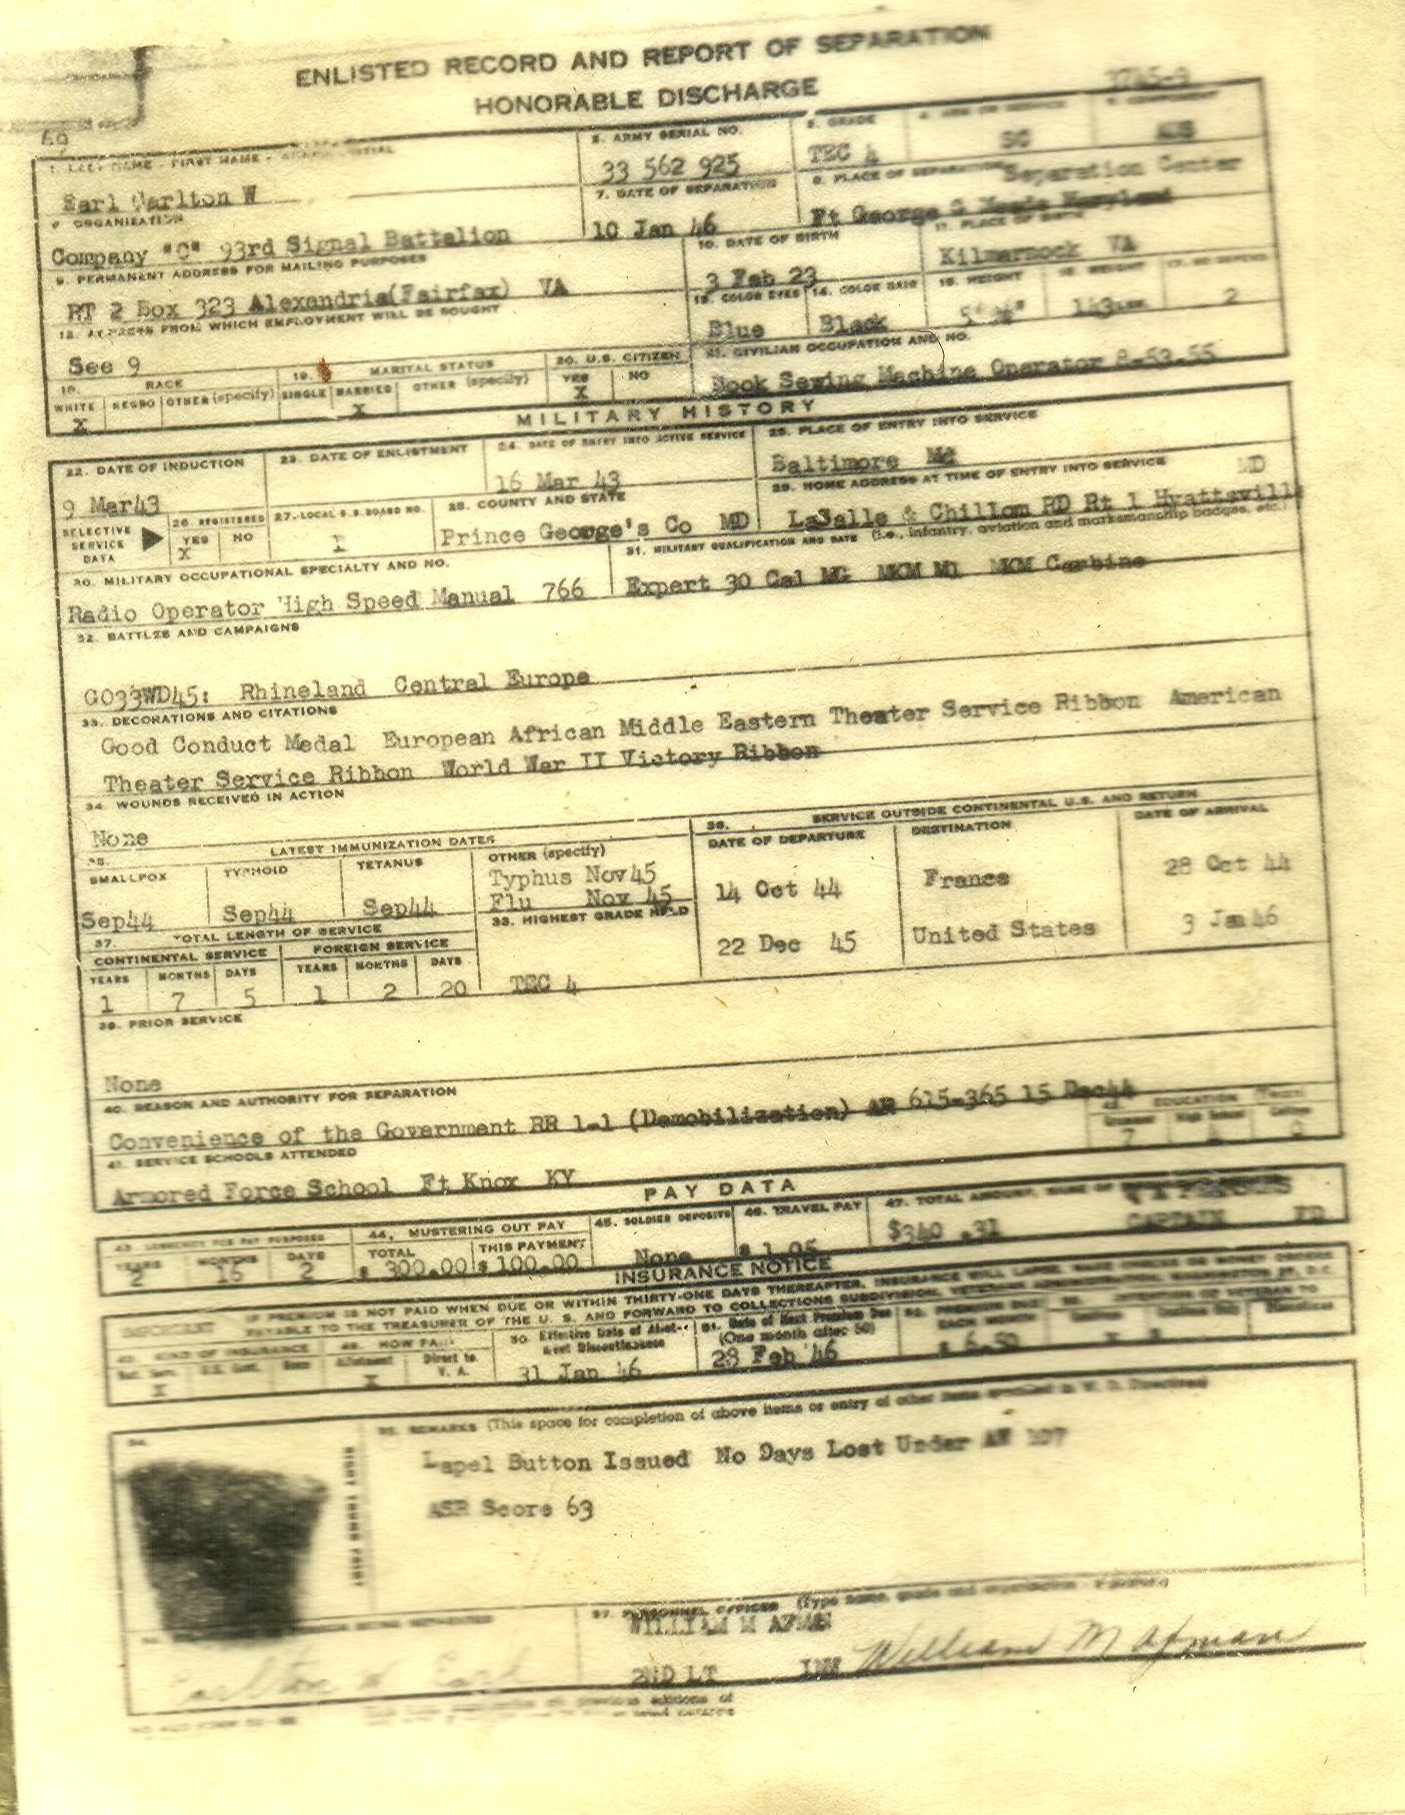 ENLISTED RECORD AND REPORT OF SEPARATION
HONORABLE DISCHARGE
69
1. LAST NAME - FIRST NAME - INITIAL
2. ARMY SERIAL NO.
3. GRADE
4. ARM OR SERVICE
5. COMPONENT
Earl Carlton W
33 562 925
TEC 4
SC
AUS
6. ORGANIZATION
7. DATE OF SEPARATION
8. PLACE OF SEPARATION
Separation Center
Company "C" 93rd Signal Battalion
10 Jan 46
Ft George G Meade Maryland
9. PERMANENT ADDRESS FOR MAILING PURPOSES
10. DATE OF BIRTH
11. PLACE OF BIRTH
RT 2 Box 323 Alexandria(Fairfax) VA
3 Feb 23
Kilmarnock VA
12. ADDRESS FROM WHICH EMPLOYMENT WILL BE SOUGHT
13. COLOR EYES
14. COLOR HAIR
15. HEIGHT
16. WEIGHT
17. NO. DEPEND.
See 9
Blue
Black
143 LBS.
2
18. RACE
19. MARITAL STATUS
20. U.S. CITIZEN
21. CIVILIAN OCCUPATION AND NO.
WHITE NEGRO OTHER (specify)
SINGLE MARRIED OTHER (specify)
YES NO
X
X
X
Hook Sewing Machine Operator 8-53.55
MILITARY HISTORY
22. DATE OF INDUCTION
23. DATE OF ENLISTMENT
24. DATE OF ENTRY INTO ACTIVE SERVICE
25. PLACE OF ENTRY INTO SERVICE
9 Mar43
16 Mar 43
Baltimore Md
SELECTIVE SERVICE DATA
26. REGISTERED
YES NO
X
27. LOCAL S.S. BOARD NO.
1
28. COUNTY AND STATE
Prince George's Co MD
29. HOME ADDRESS AT TIME OF ENTRY INTO SERVICE
MD
LaSalle & Chillom RD Rt 1 Hyattsville
30. MILITARY OCCUPATIONAL SPECIALTY AND NO.
31. MILITARY QUALIFICATION AND DATE (i.e., infantry, aviation and marksmanship badges, etc.)
Radio Operator High Speed Manual 766
Expert 30 Cal MG MKM M1 MKM Carbine
32. BATTLES AND CAMPAIGNS
GO33WD45: Rhineland Central Europe
33. DECORATIONS AND CITATIONS
Good Conduct Medal European African Middle Eastern Theater Service Ribbon American
Theater Service Ribbon World War II Victory Ribbon
34. WOUNDS RECEIVED IN ACTION
None
35. LATEST IMMUNIZATION DATES
SMALLPOX
TYPHOID
TETANUS
OTHER (specify)
Sep44
Sep44
Sep44
Typhus Nov45
Flu Nov 45
36. SERVICE OUTSIDE CONTINENTAL U.S. AND RETURN
DATE OF DEPARTURE
DESTINATION
DATE OF ARRIVAL
14 Oct 44
France
28 Oct 44
22 Dec 45
United States
3 Jan 46
37. TOTAL LENGTH OF SERVICE
38. HIGHEST GRADE HELD
CONTINENTAL SERVICE
FOREIGN SERVICE
YEARS MONTHS DAYS
YEARS MONTHS DAYS
1 7 5
1 2 20
TEC 4
39. PRIOR SERVICE
None
40. REASON AND AUTHORITY FOR SEPARATION
Convenience of the Government RR 1-1 (Demobilization) AR 615-365 15 Dec44
41. SERVICE SCHOOLS ATTENDED
42. EDUCATION (Years)
Grammar High School College
7 1 0
Armored Force School Ft Knox KY
PAY DATA
43. LONGEVITY FOR PAY PURPOSES
YEARS MONTHS DAYS
2
2
44. MUSTERING OUT PAY
TOTAL
THIS PAYMENT
$ 300.00
$ 100.00
45. SOLDIER DEPOSITS
None
46. TRAVEL PAY
$ 1.05
47. TOTAL AMOUNT, NAME OF
$340.31
CAPTAIN FD
INSURANCE NOTICE
IF PREMIUM IS NOT PAID WHEN DUE OR WITHIN THIRTY-ONE DAYS THEREAFTER, INSURANCE WILL LAPSE. MAKE CHECKS OR MONEY ORDERS
PAYABLE TO THE TREASURER OF THE U. S. AND FORWARD TO COLLECTIONS SUBDIVISION, VETERANS ADMINISTRATION, WASHINGTON 25, D.C.
48. KIND OF INSURANCE
Nat. Serv. U.S. Govt. None
X
49. HOW PAID
Allotment
Direct to V. A.
X
50. Effective Date of Allotment Discontinuance
31 Jan 46
51. Date of Next Premium Due
(One month after 50)
28 Feb 46
EACH MONTH
$ 6.50
X
55. REMARKS (This space for completion of above items or entry of other items specified in W. D. Directives)
RIGHT THUMB PRINT
Lapel Button Issued No Days Lost Under AW 107
ASR Score 63
57. PERSONNEL OFFICER (Type name, grade and organization - signature)
WILLIAM M AFMAN
2ND LT
William M Afman
Carlton W Earl